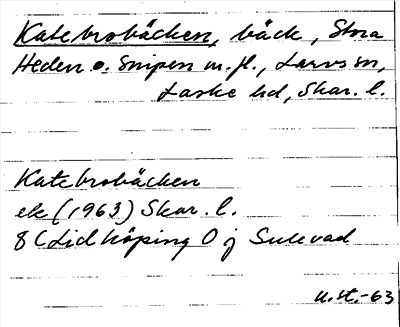 Katebrobäcken, bäck, Stora
Heden o. Snipen m.fl., Larvs sn,
Laske hd, Skar. l.
Katebrobäcken
ek (1963) Skar. l.
8 C Lidköping 0 j Sulevad
u.st.-63